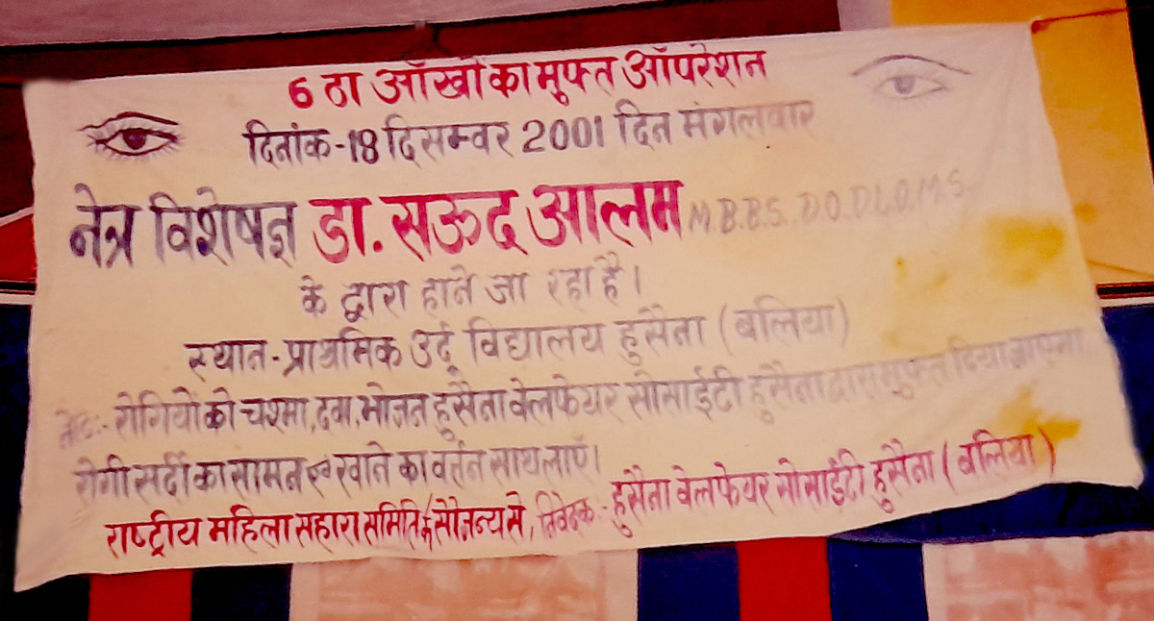 6 ठा आँखों का मुफ्त ऑपरेशन
दिनांक-18 दिसम्वर 2001 दिन मंगलवार
नेत्र विशेषज्ञ डा. सऊद आलम M.B.B.S. D.O.D.L.O.M.S.
के द्वारा होने जा रहा है।
स्थान-प्राथमिक उर्दू विद्यालय हुसैना (बलिया)
नोट:- रोगियों को चश्मा, दवा, भोजन हुसैना वेलफेयर सोसाईटी हुसैना द्वारा मुफ्त दिया जाएगा
रोगी सर्दी का सामन एवं खाने का वर्तन साथ लाएँ।
राष्ट्रीय महिला सहारा समिति के सौजन्य से, निवेदक:- हुसैना वेलफेयर सोसाईटी हुसैना (बलिया)